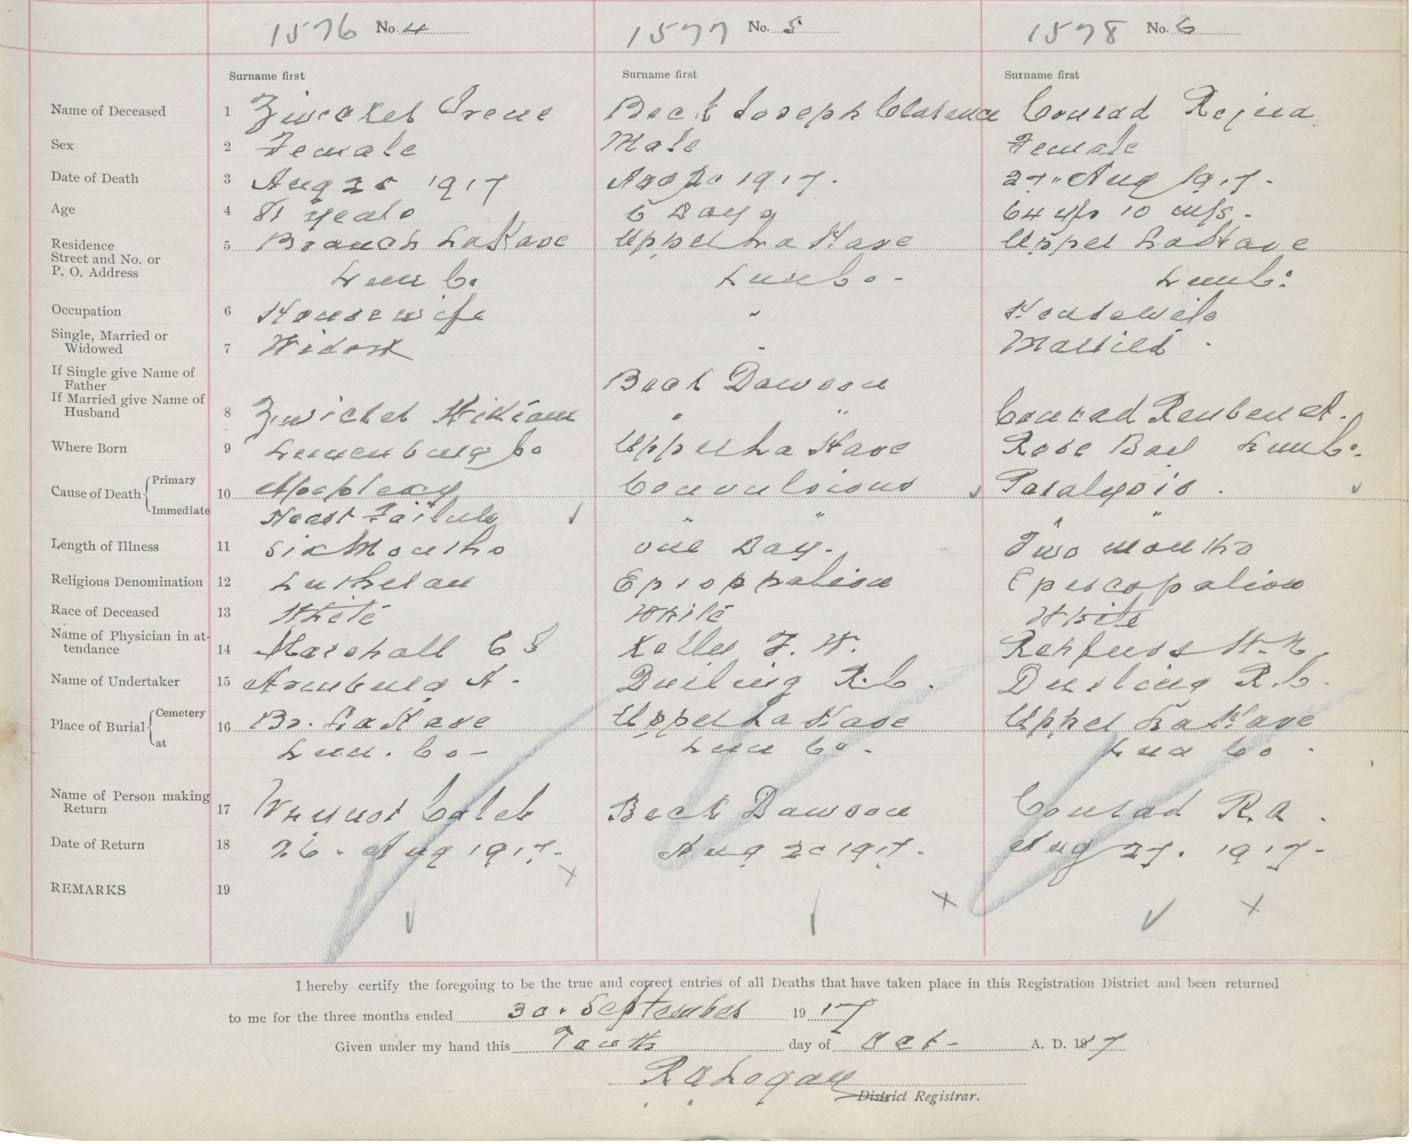 1576 No. 4 1577 No. 5 1578 No. 6
Surname first Surname first Surname first
Name of Deceased 1 Zwicker Irene Beck Joseph Clarence Conrad Rejina
Sex 2 Female Male Female
Date of Death 3 Aug 25 1917 Aug 20 1917. 27" Aug 1917.
Age 4 81 years 6 Days 64 yrs 10 mfs.
Residence 5 Branch LaHave Upper LaHave Upper LaHave
Street and No. or
P. O. Address Lun Co. Lun Co. Lun Co.
Occupation 6 Housewife " Housewife
Single, Married or
Widowed 7 Widow " Married.
If Single give Name of
Father Beck Dawson
If Married give Name of
Husband 8 Zwicker William " " Conrad Reuben A.
Where Born 9 Lunenburg Co Upper LaHave Rose Bay Lun Co.
Cause of Death Primary 10 Apoplexy Convulsions Paralysis.
Immediate Heart Failure " " " "
Length of Illness 11 Six Months one Day. Two months
Religious Denomination 12 Lutheran Episoppalian Episcopalian
Race of Deceased 13 White White White
Name of Physician in at-
tendance 14 Marshall C S Kelley F. W. Rehfuss W. N.
Name of Undertaker 15 Arenburg A. Durling R.C. Durling R.C.
Place of Burial Cemetery 16 Br. LaHave Upper LaHave Upper LaHave
at Lun. Co - Lun Co. Lun Co.
Name of Person making
Return 17 Wynot Caleb Beck Dawson Conrad R.A.
Date of Return 18 26. Aug 1917. Aug 20 1917. Aug 27. 1917.
REMARKS 19
I hereby certify the foregoing to be the true and correct entries of all Deaths that have taken place in this Registration District and been returned
to me for the three months ended 30. September 1917
Given under my hand this Tenth day of Oct- A. D. 1917
R A Logan
District Registrar.